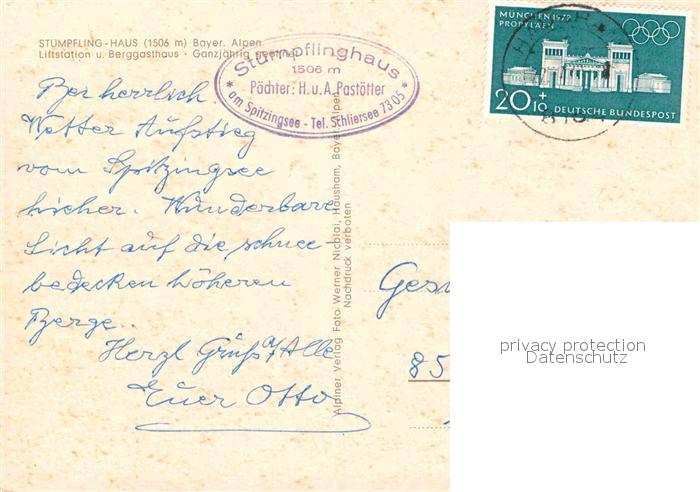 STÜMPFLING-HAUS (1506 m) Bayer. Alpen
Liftstation u. Berggasthaus - Ganzjährig geöffnet
Stümpflinghaus
1506 m
Pächter: H. u. A. Pastötter
* am Spitzingsee - Tel. Schliersee 7305 *
MÜNCHEN 1972
PROPYLÄEN
20+10 DEUTSCHE BUNDESPOST
Bei herrlich
Wetter Aufstieg
vom Spitzingsee
hierher. Wunderbare
Licht auf die schnee
bedecken höheren
Berge.
Herzl Grüße a/ Alle
Euer Otto
Alpiner Verlag Foto Werner Nicolai, Hausham, Bayer. Alpen
Nachdruck verboten
85
privacy protection
Datenschutz